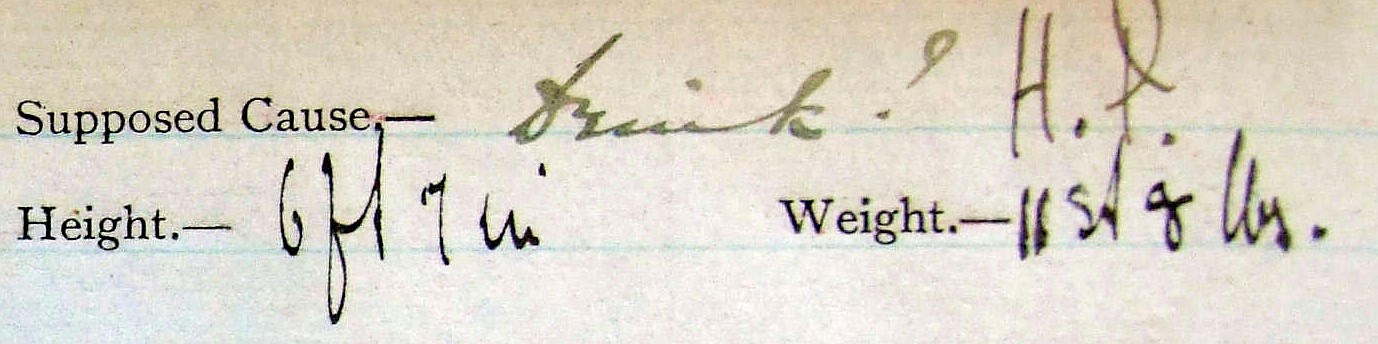 Supposed Cause.— Drink? H.P.
Height.— 6 ft 7 in Weight.— 11 st 8 lbs.